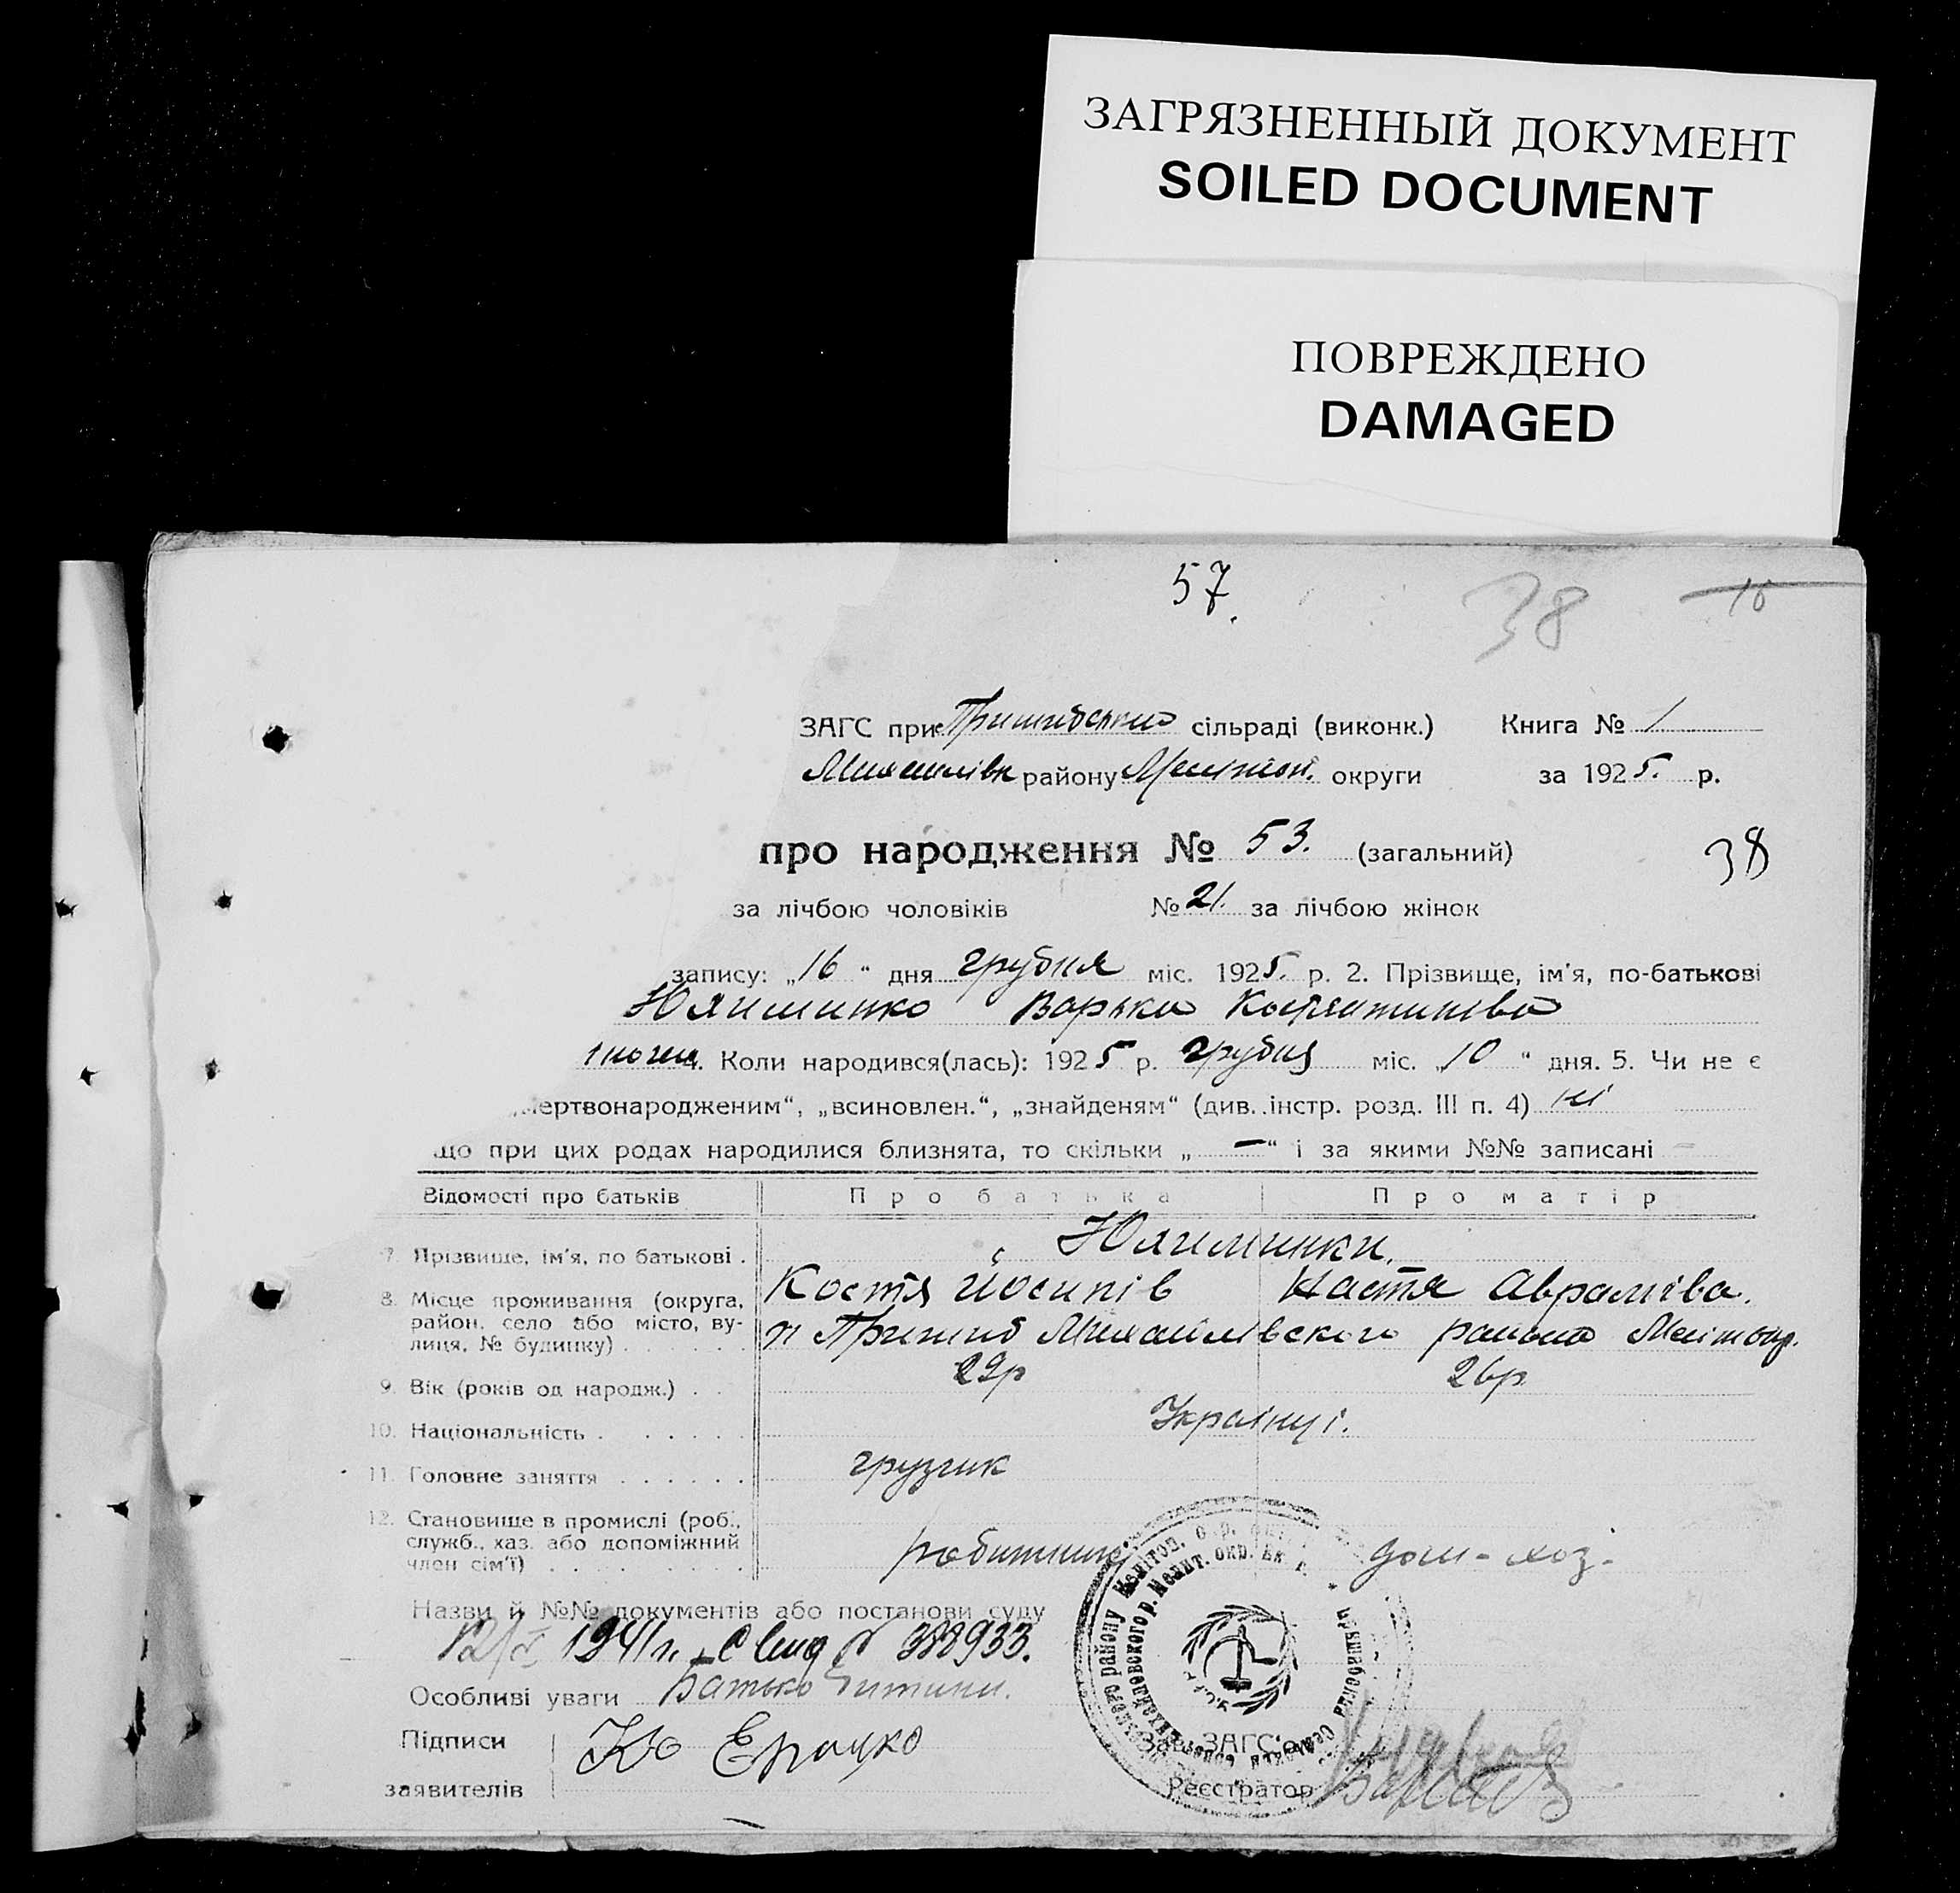 ЗАГРЯЗНЕННЫЙ ДОКУМЕНТ
SOILED DOCUMENT
ПОВРЕЖДЕНО
DAMAGED
57.
38
ЗАГС при сільраді (виконк.) Книга № 1
району округи за 1925. р.
про народження № 53. (загальний)
38
за лічбою чоловіків № 21. за лічбою жінок
запису: „16“ дня грудня міс. 1925. р. 2. Прізвище, ім'я, по-батькові
Варька Костянтиніва
Коли народився(лась): 1925 р. грудня міс. „10“ дня. 5. Чи не є
„мертвонародженим“, „всиновлен.“, „знайденям“ (див. інстр. розд. III п. 4) ні
що при цих родах народилися близнята, то скільки „ — “ і за якими №№ записані —
Відомості про батьків Про батька Про матір
7. Прізвище, ім'я, по батькові .
Костя Йосипів Настя Аврамівa.
8. Місце проживання (округа, район, село або місто, вулиця, № будинку)
п Пришиб Михайлівського району Мелітоп.
9. Вік (років од народж.) . . 29р 26р
10. Національність . Українці.
11. Головне заняття грузчик
12. Становище в промислі (роб., служб., хаз. або допоміжний член сім'ї)
робитник дом-хоз.
Назви й №№ документів або постанови суду
1941г.
Особливі уваги Батько дитини.
Підписи
заявителів
Зав. ЗАГС'ом
Реєстратор